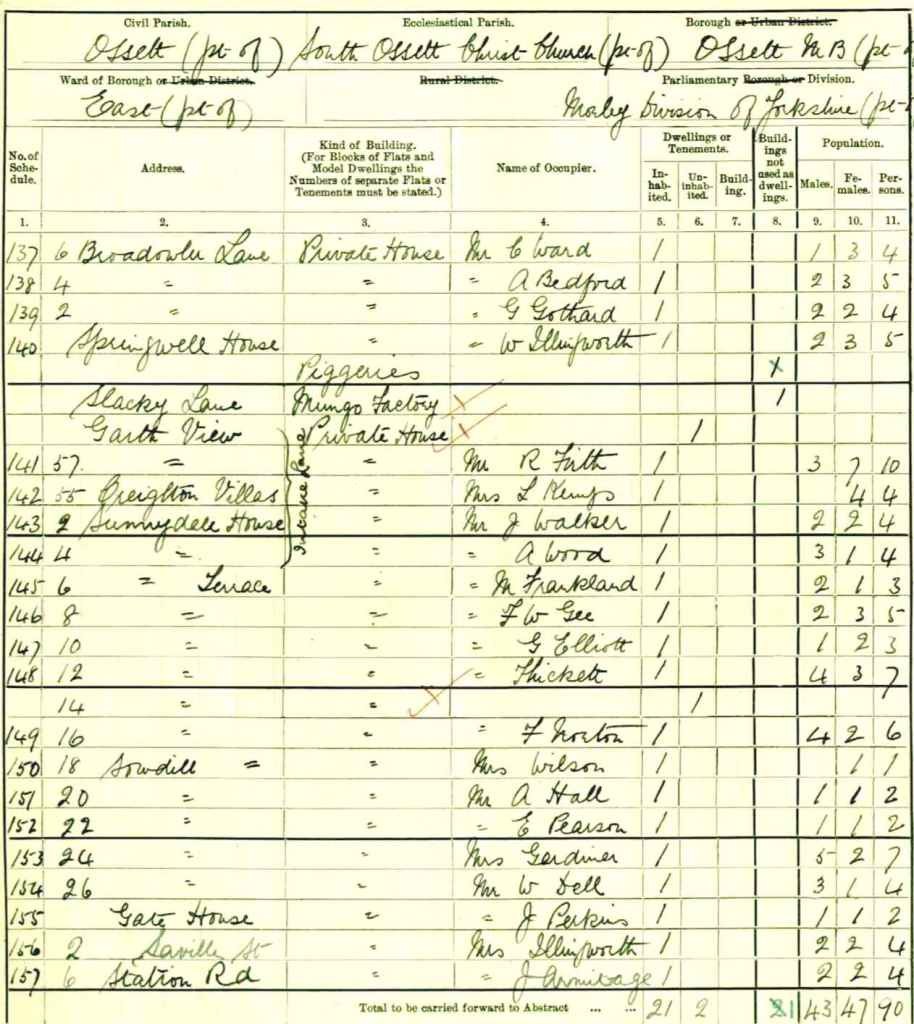 Civil Parish. Ecclesiastical Parish. Borough or Urban District.
Ossett (pt of) South Ossett Christ Church (pt of) Ossett M B (pt
Ward of Borough or Urban District. Rural District. Parliamentary Borough or Division.
East (pt of) Morley Division of Yorkshire (pt
No. of Schedule. Address. Kind of Building. (For Blocks of Flats and Model Dwellings the Numbers of separate Flats or Tenements must be stated.) Name of Occupier. Dwellings or Tenements. Inhabited. Uninhabited. Building. Buildings not used as dwellings. Population. Males. Females. Persons.
1. 2. 3. 4. 5. 6. 7. 8. 9. 10. 11.
137 6 Broadowler Lane Private House Mr C Ward 1 1 3 4
138 4 " " " A Bedford 1 2 3 5
139 2 " " " G Gothard 1 2 2 4
140 Springwell House " " W Illingworth 1 2 3 5
Piggeries X
Slacky Lane Mungo Factory X 1
Garth View Private House X 1
Intake Lane
141 57 " " Mr R Firth 1 3 7 10
142 55 Creighton Villas " Mrs L Kemps 1 4 4
143 2 Sunnydale House " Mr J Walker 1 2 2 4
144 4 " " " A Wood 1 3 1 4
145 6 " Terrace " " M Frankland 1 2 1 3
146 8 " " " F W Gee 1 2 3 5
147 10 " " " G Elliott 1 1 2 3
148 12 " " " Thickett 1 4 3 7
14 " " X 1
149 16 " " " F Norton 1 4 2 6
150 18 Sowdill " " Mrs Wilson 1 1 1
151 20 " " Mr A Hall 1 1 1 2
152 22 " " " E Pearson 1 1 1 2
153 24 " " Mrs Gardiner 1 5 2 7
154 26 " " Mr W Dell 1 3 1 4
155 Gate House " " J Perkins 1 1 1 2
156 2 Saville St " Mrs Illingworth 1 2 2 4
157 6 Station Rd " " J Armitage 1 2 2 4
Total to be carried forward to Abstract ... ... 21 2 1 43 47 90